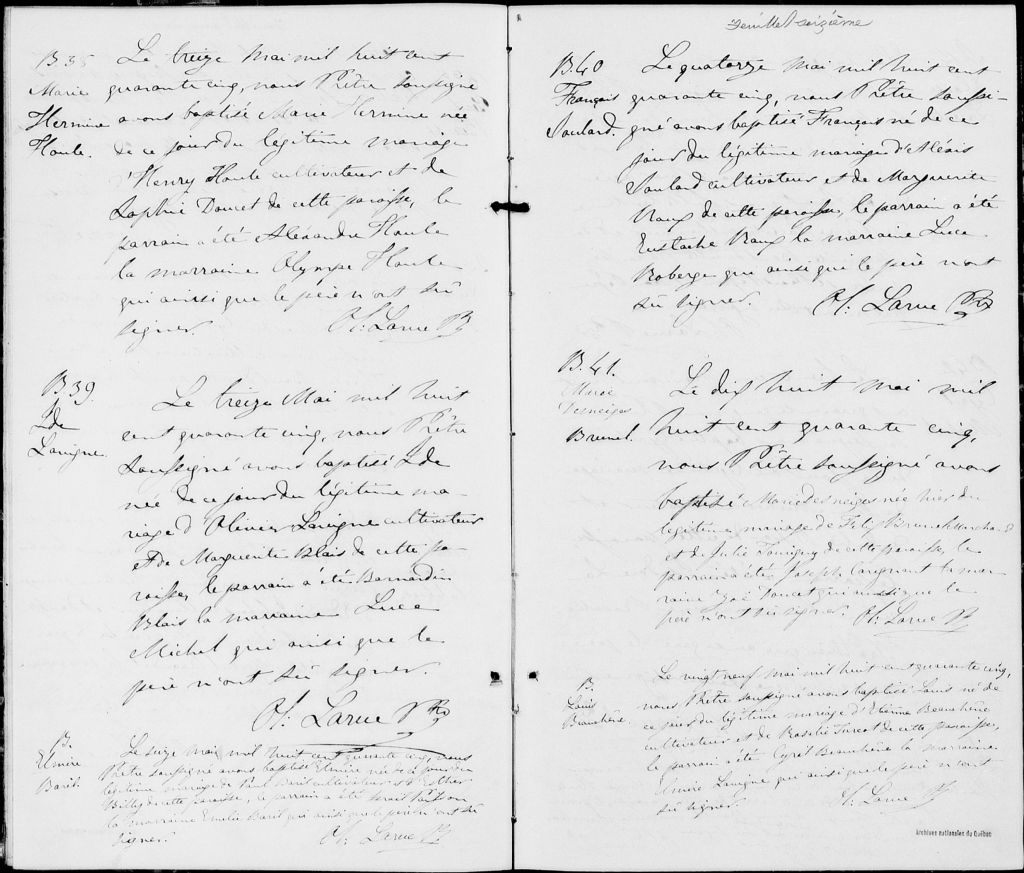 B 38
Marie
Hermine
Houle.
Le treize Mai mil huit cent
quarante cinq, nous Prêtre soussigné
avons baptisé Marie Hermine née
de ce jour du légitime mariage
d'Henry Houle cultivateur et de
Sophie Doucet de cette paroisse, le
parrain a été Alexandre Houle
la marraine Olympe Houle
qui ainsi que le père n'ont su
signer. Ol: Larue Ptr
B 39.
Ide
Lavigne.
Le treize Mai mil huit
cent quarante cinq, nous Prêtre
soussigné avons baptisé Ide
née de ce jour du légitime ma-
riage d'Olivier Lavigne cultivateur
et de Marguerite Blais de cette pa-
roisse, le parrain a été Bernardin
Blais la marraine Luce
Michel qui ainsi que le
père n'ont su signer.
Ol: Larue Ptr
B.
Elmire
Baril.
Le seize Mai mil huit cent quarante cinq, nous
Prêtre soussigné avons baptisé Elmire née de ce jour du
légitime mariage de Paul Baril cultivateur et d'Esther
Billy de cette paroisse, le parrain a été
la marraine Emélie Baril qui ainsi que le père n'ont su
signer. Ol: Larue Ptr
Feuillet seizième
B. 40
François
Soulard.
Le quatorze Mai mil huit cent
quarante cinq, nous Prêtre soussi-
gné avons baptisé François né de ce
jour du légitime mariage d'Alexis
Soulard cultivateur et de Marguerite
Raux de cette paroisse, le parrain a été
Eustache Raux la marraine Luce
Roberge qui ainsi que le père n'ont
su signer. Ol: Larue Ptr
B. 41.
Marie
Desneiges
Brunel.
Le dix huit mai mil
huit cent quarante cinq,
nous Prêtre soussigné avons
baptisé Marie des neiges née hier du
légitime mariage de Felix Brunel marchand
et de Julie Tourigny de cette paroisse, le
parrain a été Joseph la mar-
raine Zoé Doucet qui ainsi que le
père n'ont su signer. Ol: Larue Ptr
B.
Louis
Beauchêne.
Le vingt neuf Mai mil huit cent quarante cinq,
nous Prêtre soussigné avons baptisé Louis né de
ce jour du légitime mariage d'Etienne Beauchêne
cultivateur et de Roselie Turcot de cette paroisse,
le parrain a été Cyril Beauchêne la marraine
Elmire Lavigne qui ainsi que le père n'ont
su signer. Ol: Larue Ptr
Archives nationales du Québec